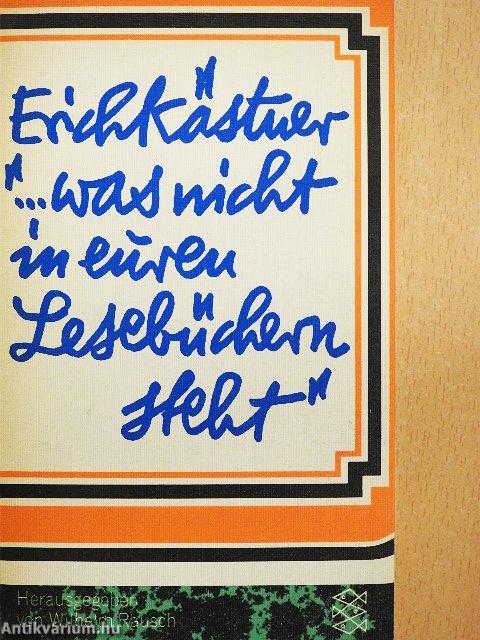 Erich Kästner
"...was nicht
in euren
Lesebüchern
steht"
Herausgegeben
von Wilhelm Rausch
Antikvárium.hu